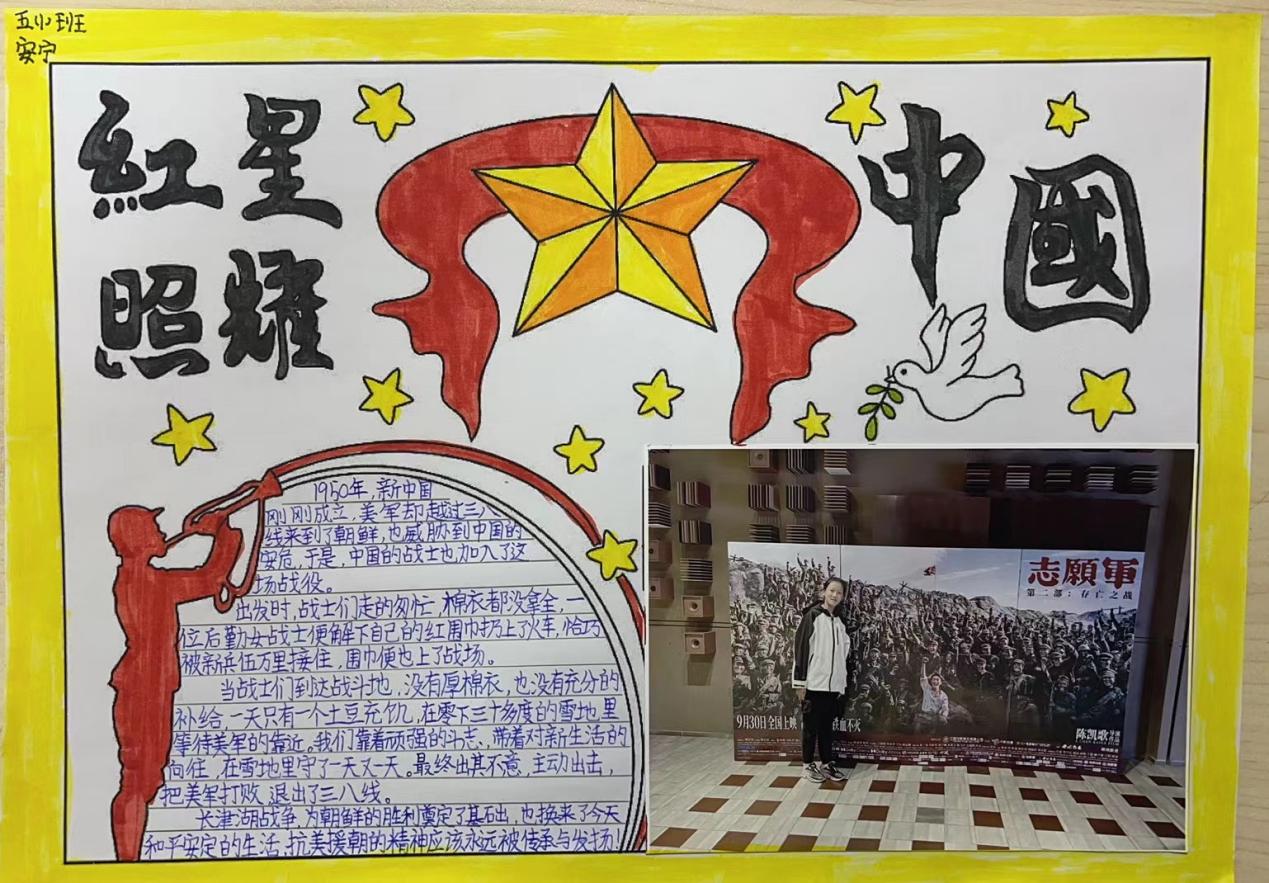 五小班
安宁
紅星
照耀
中國
1950年，新中国
刚刚成立，美军却越过三八
线来到了朝鲜，也威胁到中国的
安危，于是，中国的战士也加入了这
场战役。
出发时，战士们走的匆忙，棉衣都没拿全，一
位后勤女战士便解下自己的红围巾扔上了火车，恰巧
被新兵伍万里接住，围巾便也上了战场。
当战士们到达战斗地，没有厚棉衣，也没有充分的
补给，一天只有一个土豆充饥，在零下三十多度的雪地里
等待美军的靠近。我们靠着顽强的斗志，带着对新生活的
向往，在雪地里守了一天又一天。最终出其不意，主动出击，
把美军打败，退出了三八线。
长津湖战争，为朝鲜的胜利奠定了基石出，也换来了今天
和平安定的生活，抗美援朝的精神应该永远被传承与发扬！
志願軍
第二部：存亡之战
9月30日全国上映
铁血不灭
陈凯歌